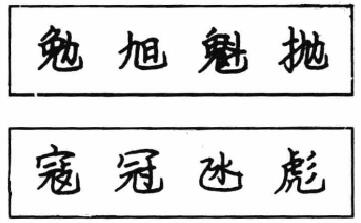 勉旭魁抛
寇冠氹彪